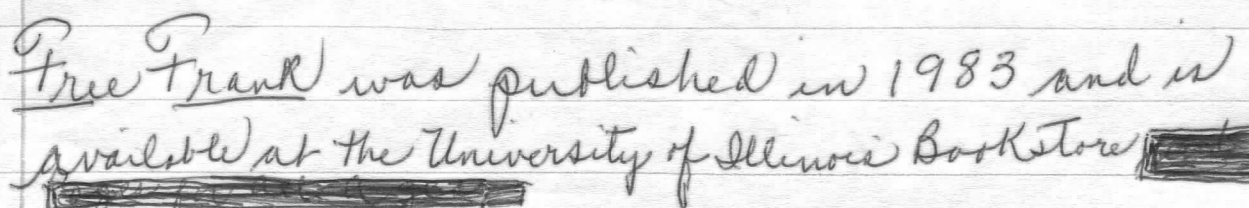 Free Frank was published in 1983 and is
available at the University of Illinois Bookstore